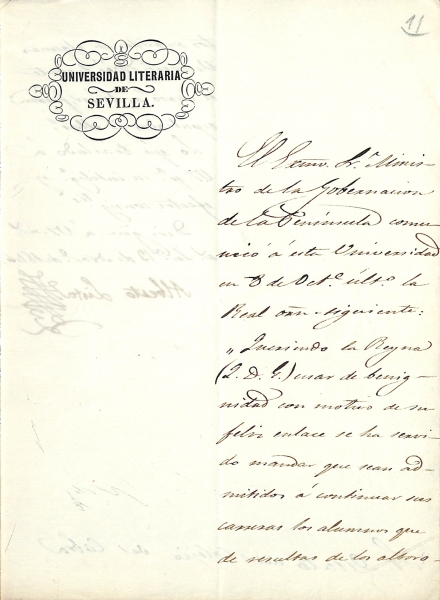 11
UNIVERSIDAD LITERARIA
DE
SEVILLA.
El Exmo. Sr. Minis-
tro de la Gobernacion
de la Peninsula comu-
nicó á esta Universidad
en 8 de Octe. últo. la
Real orn. siguiente:
"Queriendo la Reyna
(Q. D. G.) usar de benig-
nidad con motivo de su
feliz enlace se ha servi-
do mandar que sean ad-
mitidos á continuar sus
carreras los alumnos que
de resultas de los alboro-